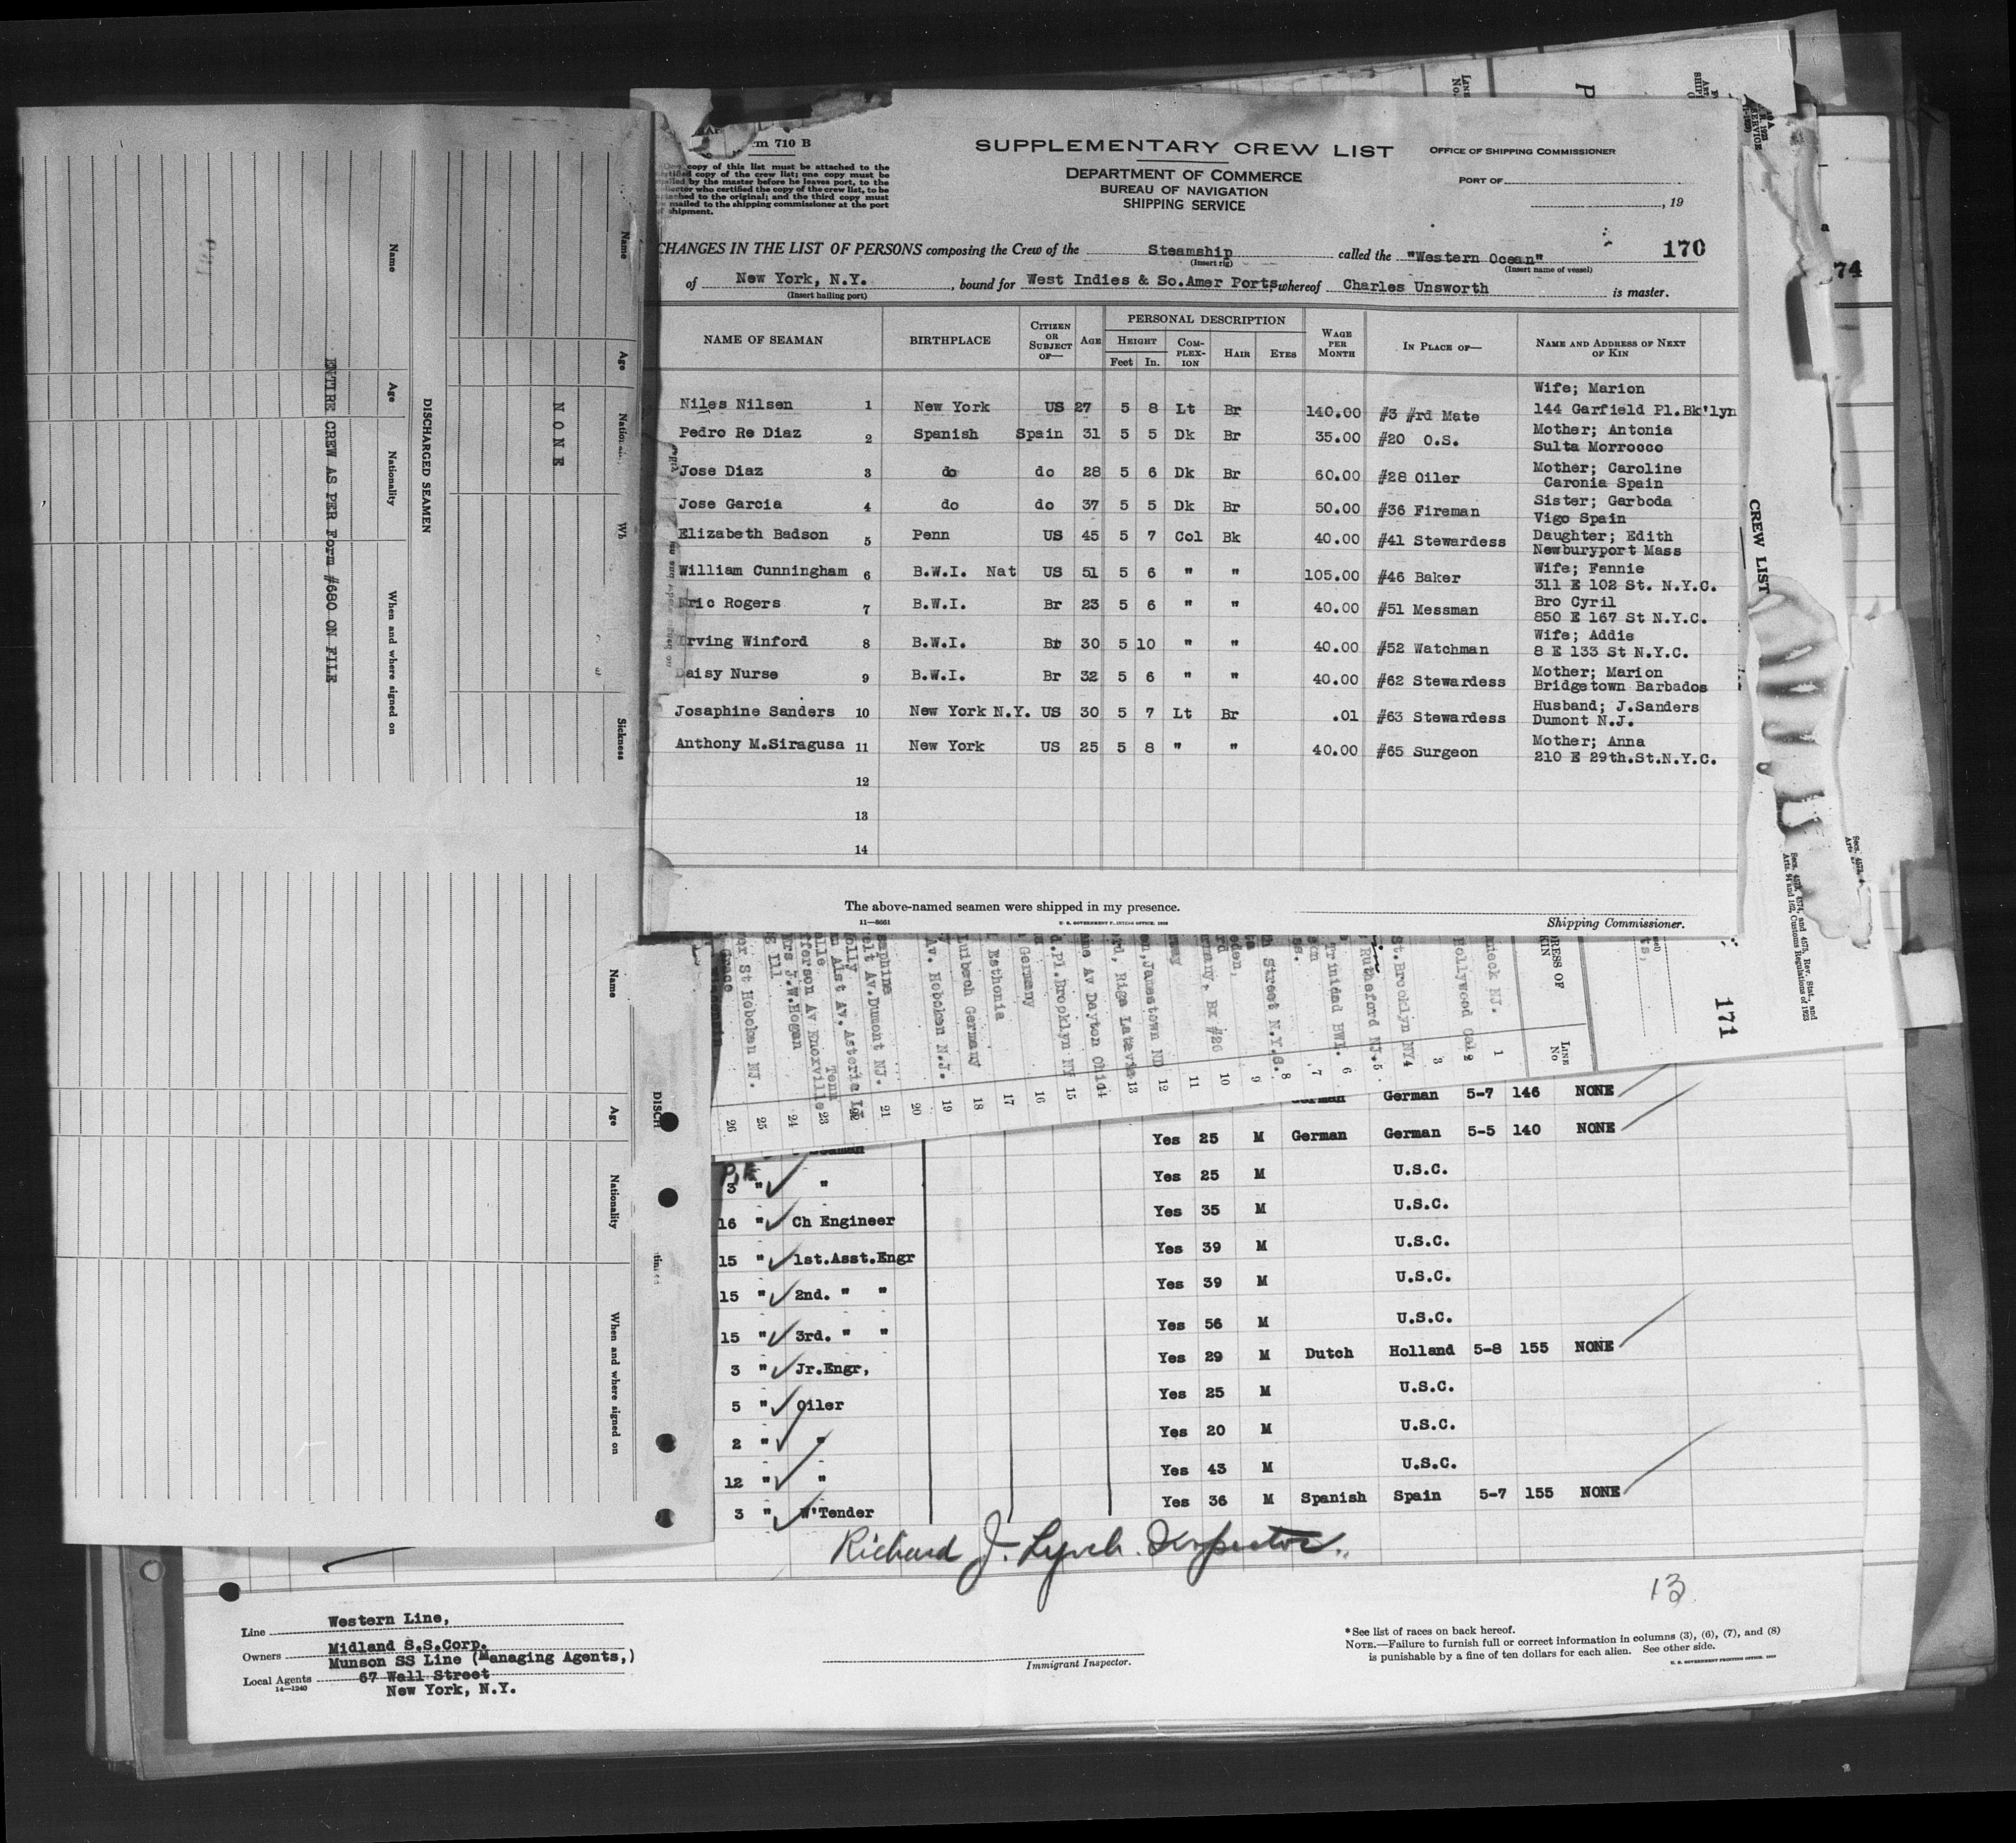 m 710 B
copy of this list must be attached to the
certified copy of the crew list; one copy must be
mailed by the master before he leaves port, to the
collector who certified the copy of the crew list, to be
attached to the original; and the third copy must
mailed to the shipping commissioner at the port
of shipment.
SUPPLEMENTARY CREW LIST
DEPARTMENT OF COMMERCE
BUREAU OF NAVIGATION
SHIPPING SERVICE
OFFICE OF SHIPPING COMMISSIONER
PORT OF
, 19
170
CHANGES IN THE LIST OF PERSONS composing the Crew of the Steamship called the "Western Ocean"
(Insert rig) (Insert name of vessel)
of New York, N.Y. , bound for West Indies & So.Amer Ports, whereof Charles Unsworth is master.
(Insert hailing port)
NAME OF SEAMAN BIRTHPLACE CITIZEN OR SUBJECT OF— AGE PERSONAL DESCRIPTION HEIGHT Feet In. COM-PLEX-ION HAIR EYES WAGE PER MONTH IN PLACE OF— NAME AND ADDRESS OF NEXT OF KIN
Wife; Marion
Niles Nilsen 1 New York US 27 5 8 Lt Br 140.00 #3 #rd Mate 144 Garfield Pl.Bk'lyn
Pedro Re Diaz 2 Spanish Spain 31 5 5 Dk Br 35.00 #20 O.S. Mother; Antonia
Sulta Morrocco
Jose Diaz 3 do do 28 5 6 Dk Br 60.00 #28 Oiler Mother; Caroline
Caronia Spain
Jose Garcia 4 do do 37 5 5 Dk Br 50.00 #36 Fireman Sister; Garboda
Vigo Spain
Elizabeth Badson 5 Penn US 45 5 7 Col Bk 40.00 #41 Stewardess Daughter; Edith
Newburyport Mass
William Cunningham 6 B.W.I. Nat US 51 5 6 " " 105.00 #46 Baker Wife; Fannie
311 E 102 St. N.Y.C.
Eric Rogers 7 B.W.I. Br 23 5 6 " " 40.00 #51 Messman Bro Cyril
850 E 167 St N.Y.C.
Irving Winford 8 B.W.I. Br 30 5 10 " " 40.00 #52 Watchman Wife; Addie
8 E 133 St N.Y.C.
Daisy Nurse 9 B.W.I. Br 32 5 6 " " 40.00 #62 Stewardess Mother; Marion
Bridgetown Barbados
Josaphine Sanders 10 New York N.Y. US 30 5 7 Lt Br .01 #63 Stewardess Husband; J.Sanders
Dumont N.J.
Anthony M.Siragusa 11 New York US 25 5 8 " " 40.00 #65 Surgeon Mother; Anna
210 E 29th.St.N.Y.C.
12
13
14
The above-named seamen were shipped in my presence.
11—8661
Shipping Commissioner.
Name Age Nationality When and where signed on
ENTIRE CREW AS PER Form #680 ON FILE
DISCHARGED SEAMEN
Name Age Sickness
NONE
Name Age Nationality When and where signed on
CREW LIST
74
171
Secs. 4573, 4574, and 4575, Rev. Stat., and
Arts. 94 and 162, Customs Regulations of 1923
LINE No
1
2 Hollywood Cal
3
4 St.Brooklyn NY
5 Rutherford NJ.
6 Trinidad BWI.
7
8 Street N.Y.S.
9
10
11
12 Jamestown ND
13 Riga Latavia
14 Av Dayton Ohio
15 Pl.Brooklyn NY
16 Germany
17 Esthonia
18 Luibech Germany
19 Av. Hoboken N.J.
20
21 Av.Dumont NJ.
22 Alst Av. Astoria LI
23 Jefferson Av Knoxville Tenn
24 Mrs J.W.Hogan
25 St Hoboken NJ.
26
German 5-7 146 NONE
Yes 25 M German German 5-5 140 NONE
3 " " Yes 25 M U.S.C.
16 " Ch Engineer Yes 35 M U.S.C.
15 " 1st.Asst.Engr Yes 39 M U.S.C.
15 " 2nd. " " Yes 39 M U.S.C.
15 " 3rd. " " Yes 56 M U.S.C.
3 " Jr.Engr, Yes 29 M Dutch Holland 5-8 155 NONE
5 " Oiler Yes 25 M U.S.C.
2 " " Yes 20 M U.S.C.
12 " " Yes 43 M U.S.C.
3 " W'Tender Yes 36 M Spanish Spain 5-7 155 NONE
Richard J. Lynch. Inspector.
13
Line Western Line,
Owners Midland S.S.Corp.
Munson SS Line (Managing Agents,)
Local Agents 67 Wall Street
14—1240
New York, N.Y.
Immigrant Inspector.
*See list of races on back hereof.
NOTE.—Failure to furnish full or correct information in columns (3), (6), (7), and (8)
is punishable by a fine of ten dollars for each alien. See other side.
U. S. GOVERNMENT PRINTING OFFICE